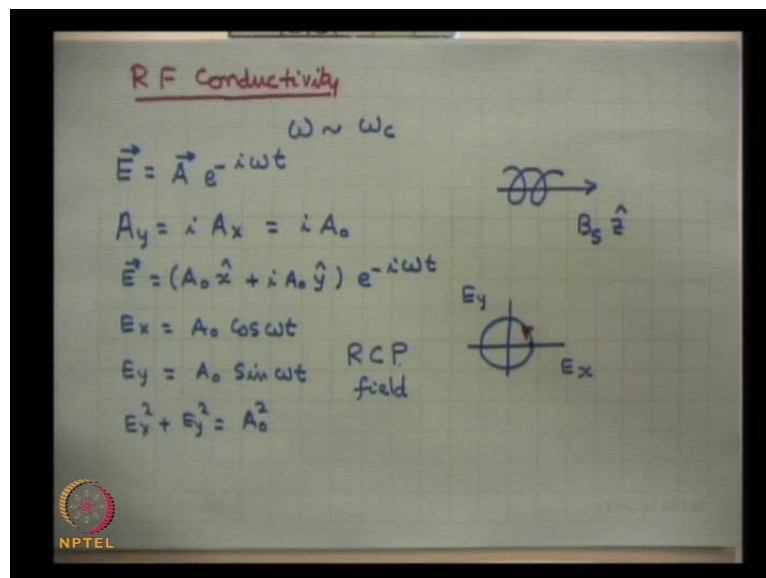 RF Conductivity
ω ~ ω_c
E⃗ = A⃗ e^{-iωt}
A_y = i A_x = i A_0
E⃗ = (A_0 x̂ + i A_0 ŷ) e^{-iωt}
E_x = A_0 cos ωt
E_y = A_0 Sin ωt
E_x^2 + E_y^2 = A_0^2
RCP
field
B_s ẑ
E_y
E_x
NPTEL